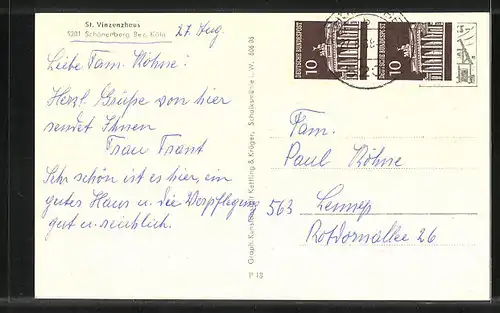 St. Vinzenzhaus
5201 Schönerberg Bez. Köln
27. Aug.
Liebe Fam. Röhne!
Herzl. Grüße von hier
sendet Ihnen
Frau Trant
Sehr schön ist es hier, ein
gutes Haus u. die Verpflegung
gut u. reichlich.
Graph. Kunstanstalt Kettling & Krüger, Schalksmühle i. W.
P 13
DEUTSCHE BUNDESPOST
10
DEUTSCHE BUNDESPOST
10
Fam.
Paul Röhne
563 Lennep
Rotdornallee 26